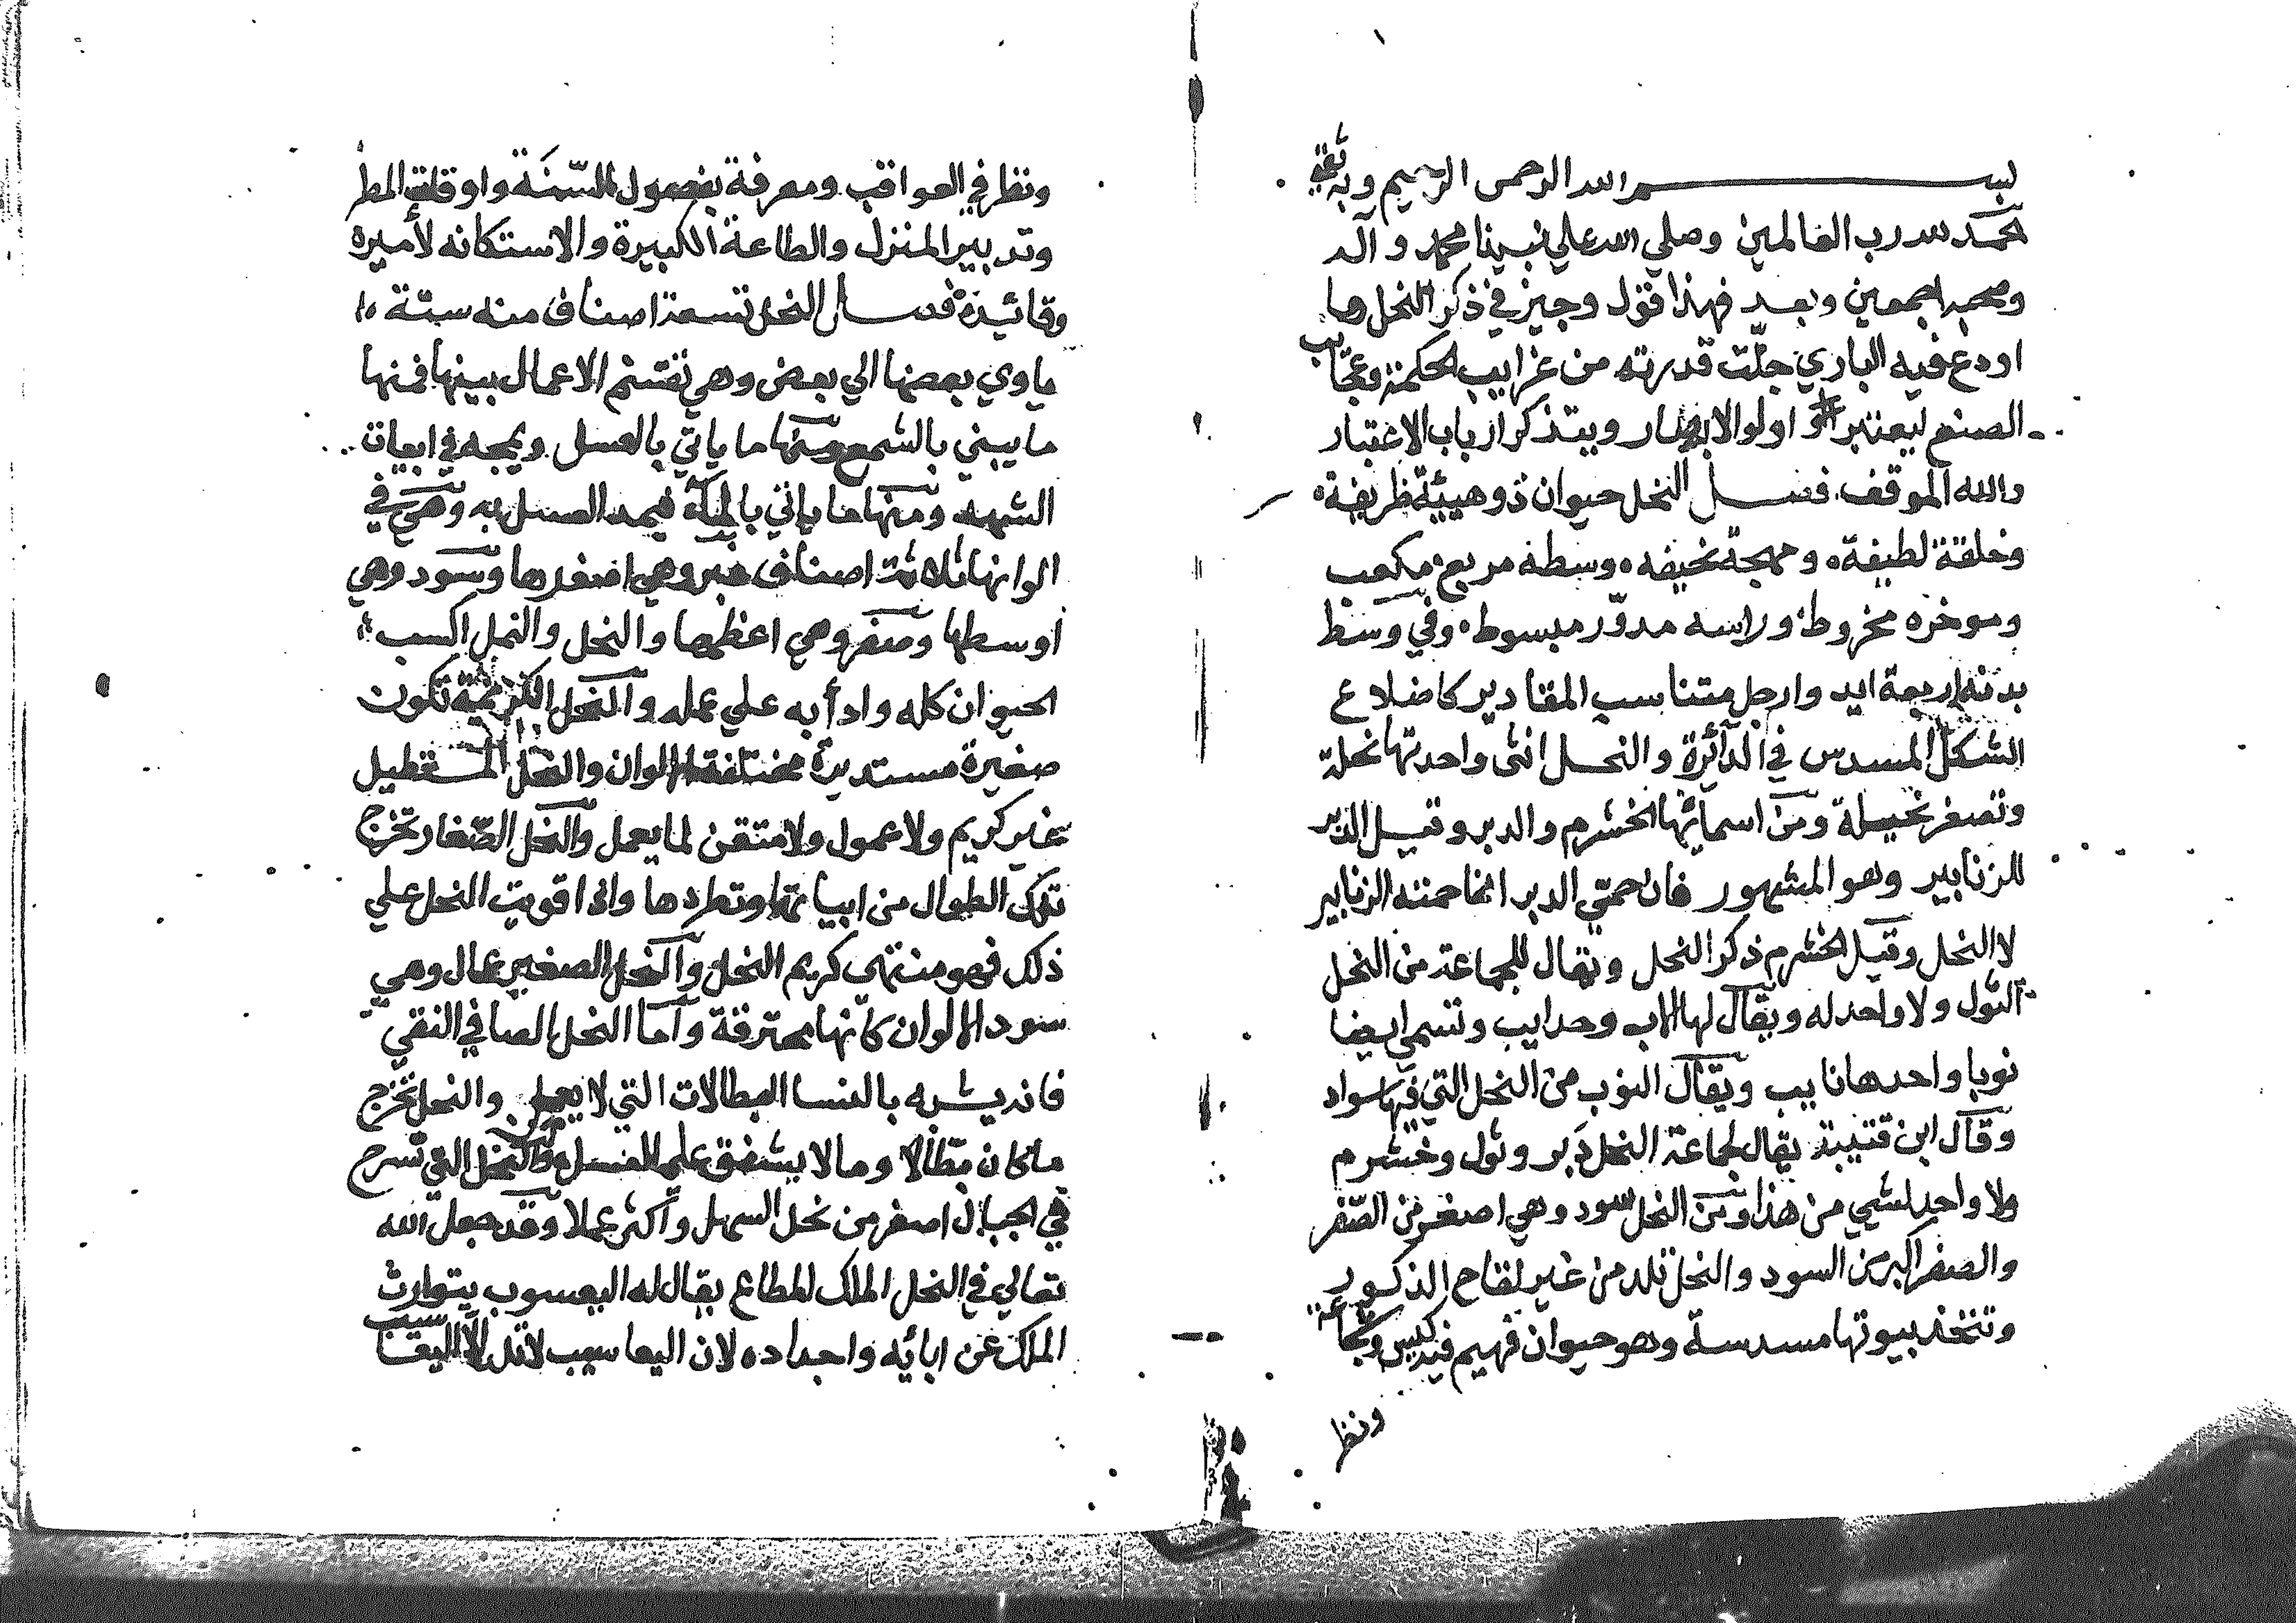 بسم الله الرحمن الرحيم وبه ثقتي
الحمد لله رب العالمين وصلي الله علي نبينا محمد و آله
وصحبه اجمعين وبعد فهذا قول وجيز في ذكر النحل وما
اودع فيه الباري جلّت قدرته من غرايب الحكمة وعجايب
الصنع ليعتبر اولو الابصار ويتذكر ارباب الاعتبار
والله الموفق فصل النحل حيوان ذو هيئة ظريفة
وخلقة لطيفة ومهجة نحيفه وسطه مربع مكعب
وموخره مخروط وراسه مدوّر مبسوط وفي وسط
بدنه اربعة ايد وارجل متناسب المقادير كاضلاع
الشكل المسدس في الدآئرة والنحل انثى واحدتها نحلة
وتصغر نحيلة ومن اسمآئها الخشرم والدبر وقيل الدبر
للزنابير وهو المشهور فان حمّي الدبر انما حمته الزنابير
لا النحل وقيل الخشرم ذكر النحل ويقال للجماعة من النحل
الثول ولا واحد له ويقال لها اللاب وحدايب وتسمي ايضا
نوبا واحدها نايب ويقال النوب من النحل التي فيها سواد
وقال ابن قتيبة يقال لجماعة النحل دَبر وثول وخشرم
ولا واحد لشي من هذا ومن النحل سود وهي اصغر من الصّفر
والصفر اكبر من السود والنحل تلد من غير لقاح الذكور
وتتخذ بيوتها مسدسة وهو حيوان فهيم فيه كيس وشجاعة
ونظر
ونظر في العواقب ومعرفة بفصول السّنَة واوقات المطر
وتدبير المنزل والطاعة الكبيرة والاستكانه لأميره
وقائده فصل النحل تسعة اصناف منه ستة
ياوي بعضها الي بعض وهي تقتسم الاعمال بينها فمنها
ما يبني بالشمع ومنها ما ياتي بالعسل ويمجه في ابيات
الشهد ومنها ما ياتي بالمآء فيمد العسل به وهي في
الوانها ثلاثة اصناف غبر وهي اصغرها وسود وهي
اوسطها وصفر وهي اعظمها والنحل والنمل اكسب
الحيوان كله وادأبه علي عمله والنحل الكريمة تكون
صغيرة مستديرة مختلفة الالوان والنحل المستطيل
غير كريم ولا عمول ولا متقن لما يعمل والنحل الصّغار تخرج
تلك الطوال من ابياتها وتطردها واذا قويت النحل علي
ذلك فهو منتهى كريم النحل والنحل الصغير عمال وهي
سود الالوان كانها محترقة واما النحل الصافي النقي
فانه يشبه بالنسا البطالات التي لا يعملن والنحل تخرج
ما كان بطّالا وما لا يشفق علي العسل والنحل التي تسرح
في الجبال اصغر من نحل السهل واكثر عملا وقد جعل الله
تعالي في النحل الملك المطاع يقال له اليعسوب يتوارث
الملك عن ابائه واجداده لان اليعاسيب لا تلد الّا اليعاسيب